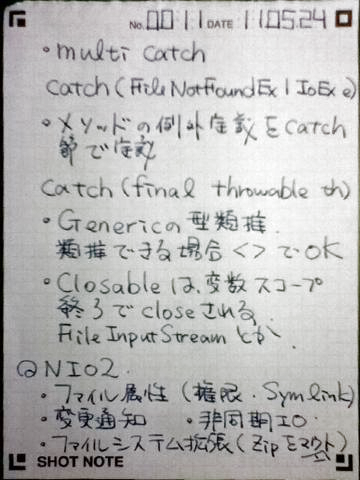 No. 0011 DATE 11.05.24
・multi catch
catch(FileNotFoundEx | IoEx e)
・メソッドの例外定義をcatch
節で定義
catch(final throwable th)
・Genericの型類推
類推できる場合<>でOK
・Closableは、変数スコープ
終了でcloseされる
FileInputStreamとか
@NIO2.
・ファイル属性(権限・Symlink)
・変更通知 ・非同期IO・
・ファイルシステム拡張(Zipをマウント)
SHOT NOTE